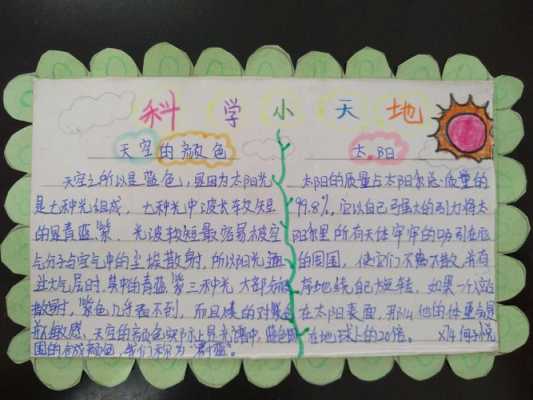 科学小天地
天空的颜色
天空之所以是蓝色，是因为太阳光
是七种光组成，七种光中波长较短
的是青蓝紫，光波较短最容易被空
气分子与空气中的尘埃散射，所以阳光
过大气层时，其中的青蓝紫三种光大部分
散射，紫色几乎看不到，而且
敏感，天空的颜色实际上是光谱中蓝色
的合成颜色，我们称为
太阳
太阳的质量占太阳系总质量的
99.8%，它以自己强大的引力将太
阳系里所有天体牢牢的吸引在
的周围，使它们不离不散，井
有序地绕自己旋转，如果一个
在太阳表面，那么他的体重
在地球上的20倍。